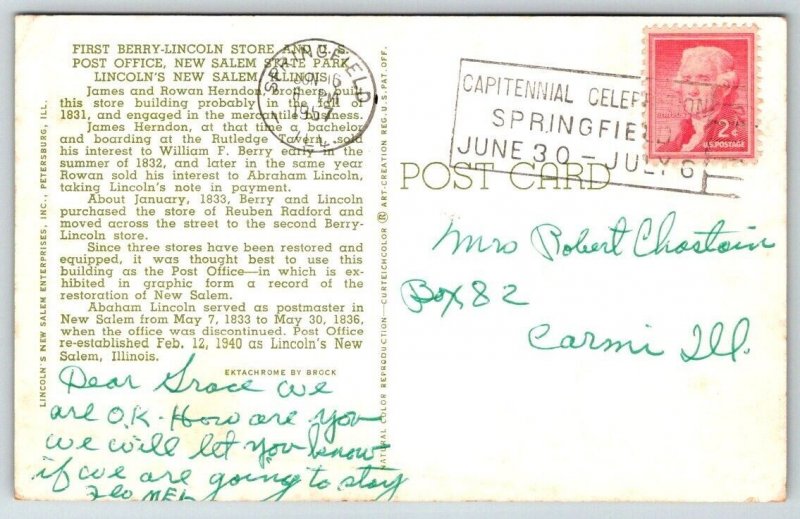 FIRST BERRY-LINCOLN STORE AND U.S.
POST OFFICE, NEW SALEM STATE PARK,
LINCOLN'S NEW SALEM, ILLINOIS
James and Rowan Herndon, brothers, built
this store building probably in the fall of
1831, and engaged in the mercantile business.
James Herndon, at that time a bachelor
and boarding at the Rutledge Tavern, sold
his interest to William F. Berry early in the
summer of 1832, and later in the same year
Rowan sold his interest to Abraham Lincoln,
taking Lincoln's note in payment.
About January, 1833, Berry and Lincoln
purchased the store of Reuben Radford and
moved across the street to the second Berry-
Lincoln store.
Since three stores have been restored and
equipped, it was thought best to use this
building as the Post Office—in which is ex-
hibited in graphic form a record of the
restoration of New Salem.
Abaham Lincoln served as postmaster in
New Salem from May 7, 1833 to May 30, 1836,
when the office was discontinued. Post Office
re-established Feb. 12, 1940 as Lincoln's New
Salem, Illinois.
EKTACHROME BY BROCK
LINCOLN'S NEW SALEM ENTERPRISES, INC., PETERSBURG, ILL.
Dear Grace we
are O.K. How are you
we will let you know
if we are going to stay
Flo
NATURAL COLOR REPRODUCTION—CURTEICHCOLOR ® ART-CREATION REG. U.S. PAT. OFF.
SPRINGFIELD
JUN 16
PM
1957
ILL.
CAPITENNIAL CELEBRATION
SPRINGFIELD
JUNE 30 – JULY 6
2¢
U.S. POSTAGE
POST CARD
Mrs Robert Chastain
Box 82
Carmi Ill.